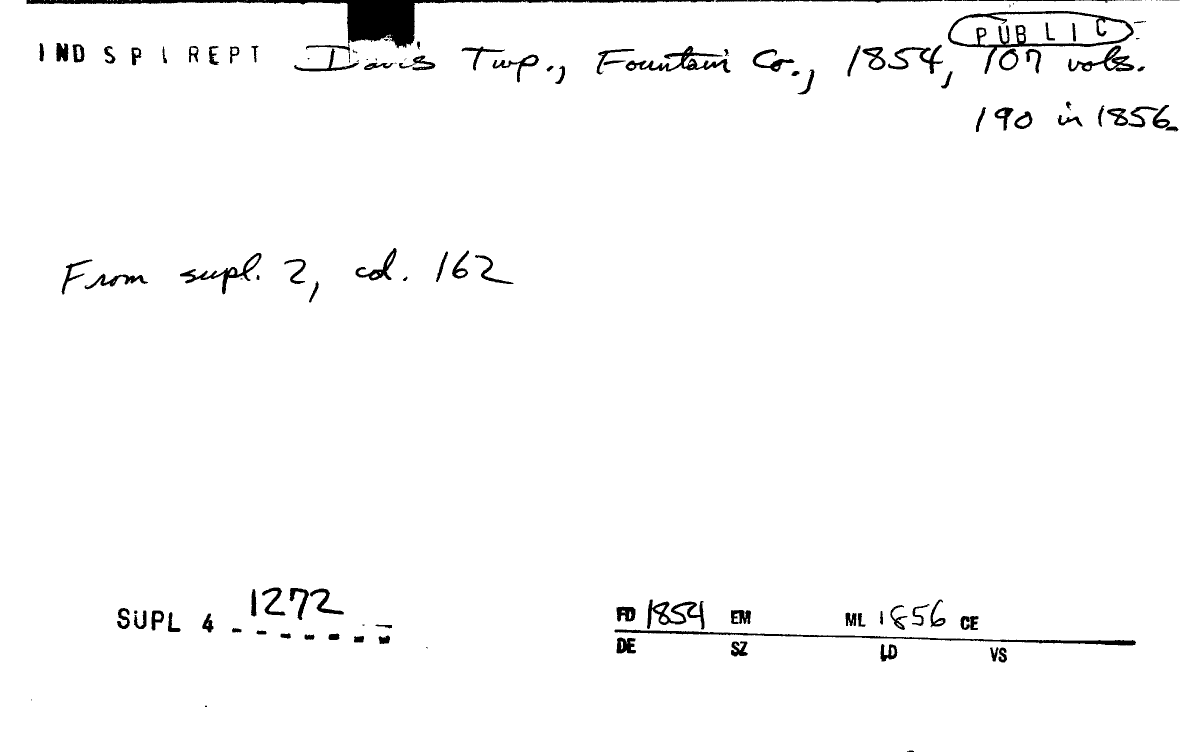 PUBLIC
IND SPI REPT Davis Twp., Fountain Co., 1854, 107 vols.
190 in 1856
From supl. 2, col. 162
SUPL 4 1272
FD 1854 EM ML 1856 CE
DE SZ LD VS